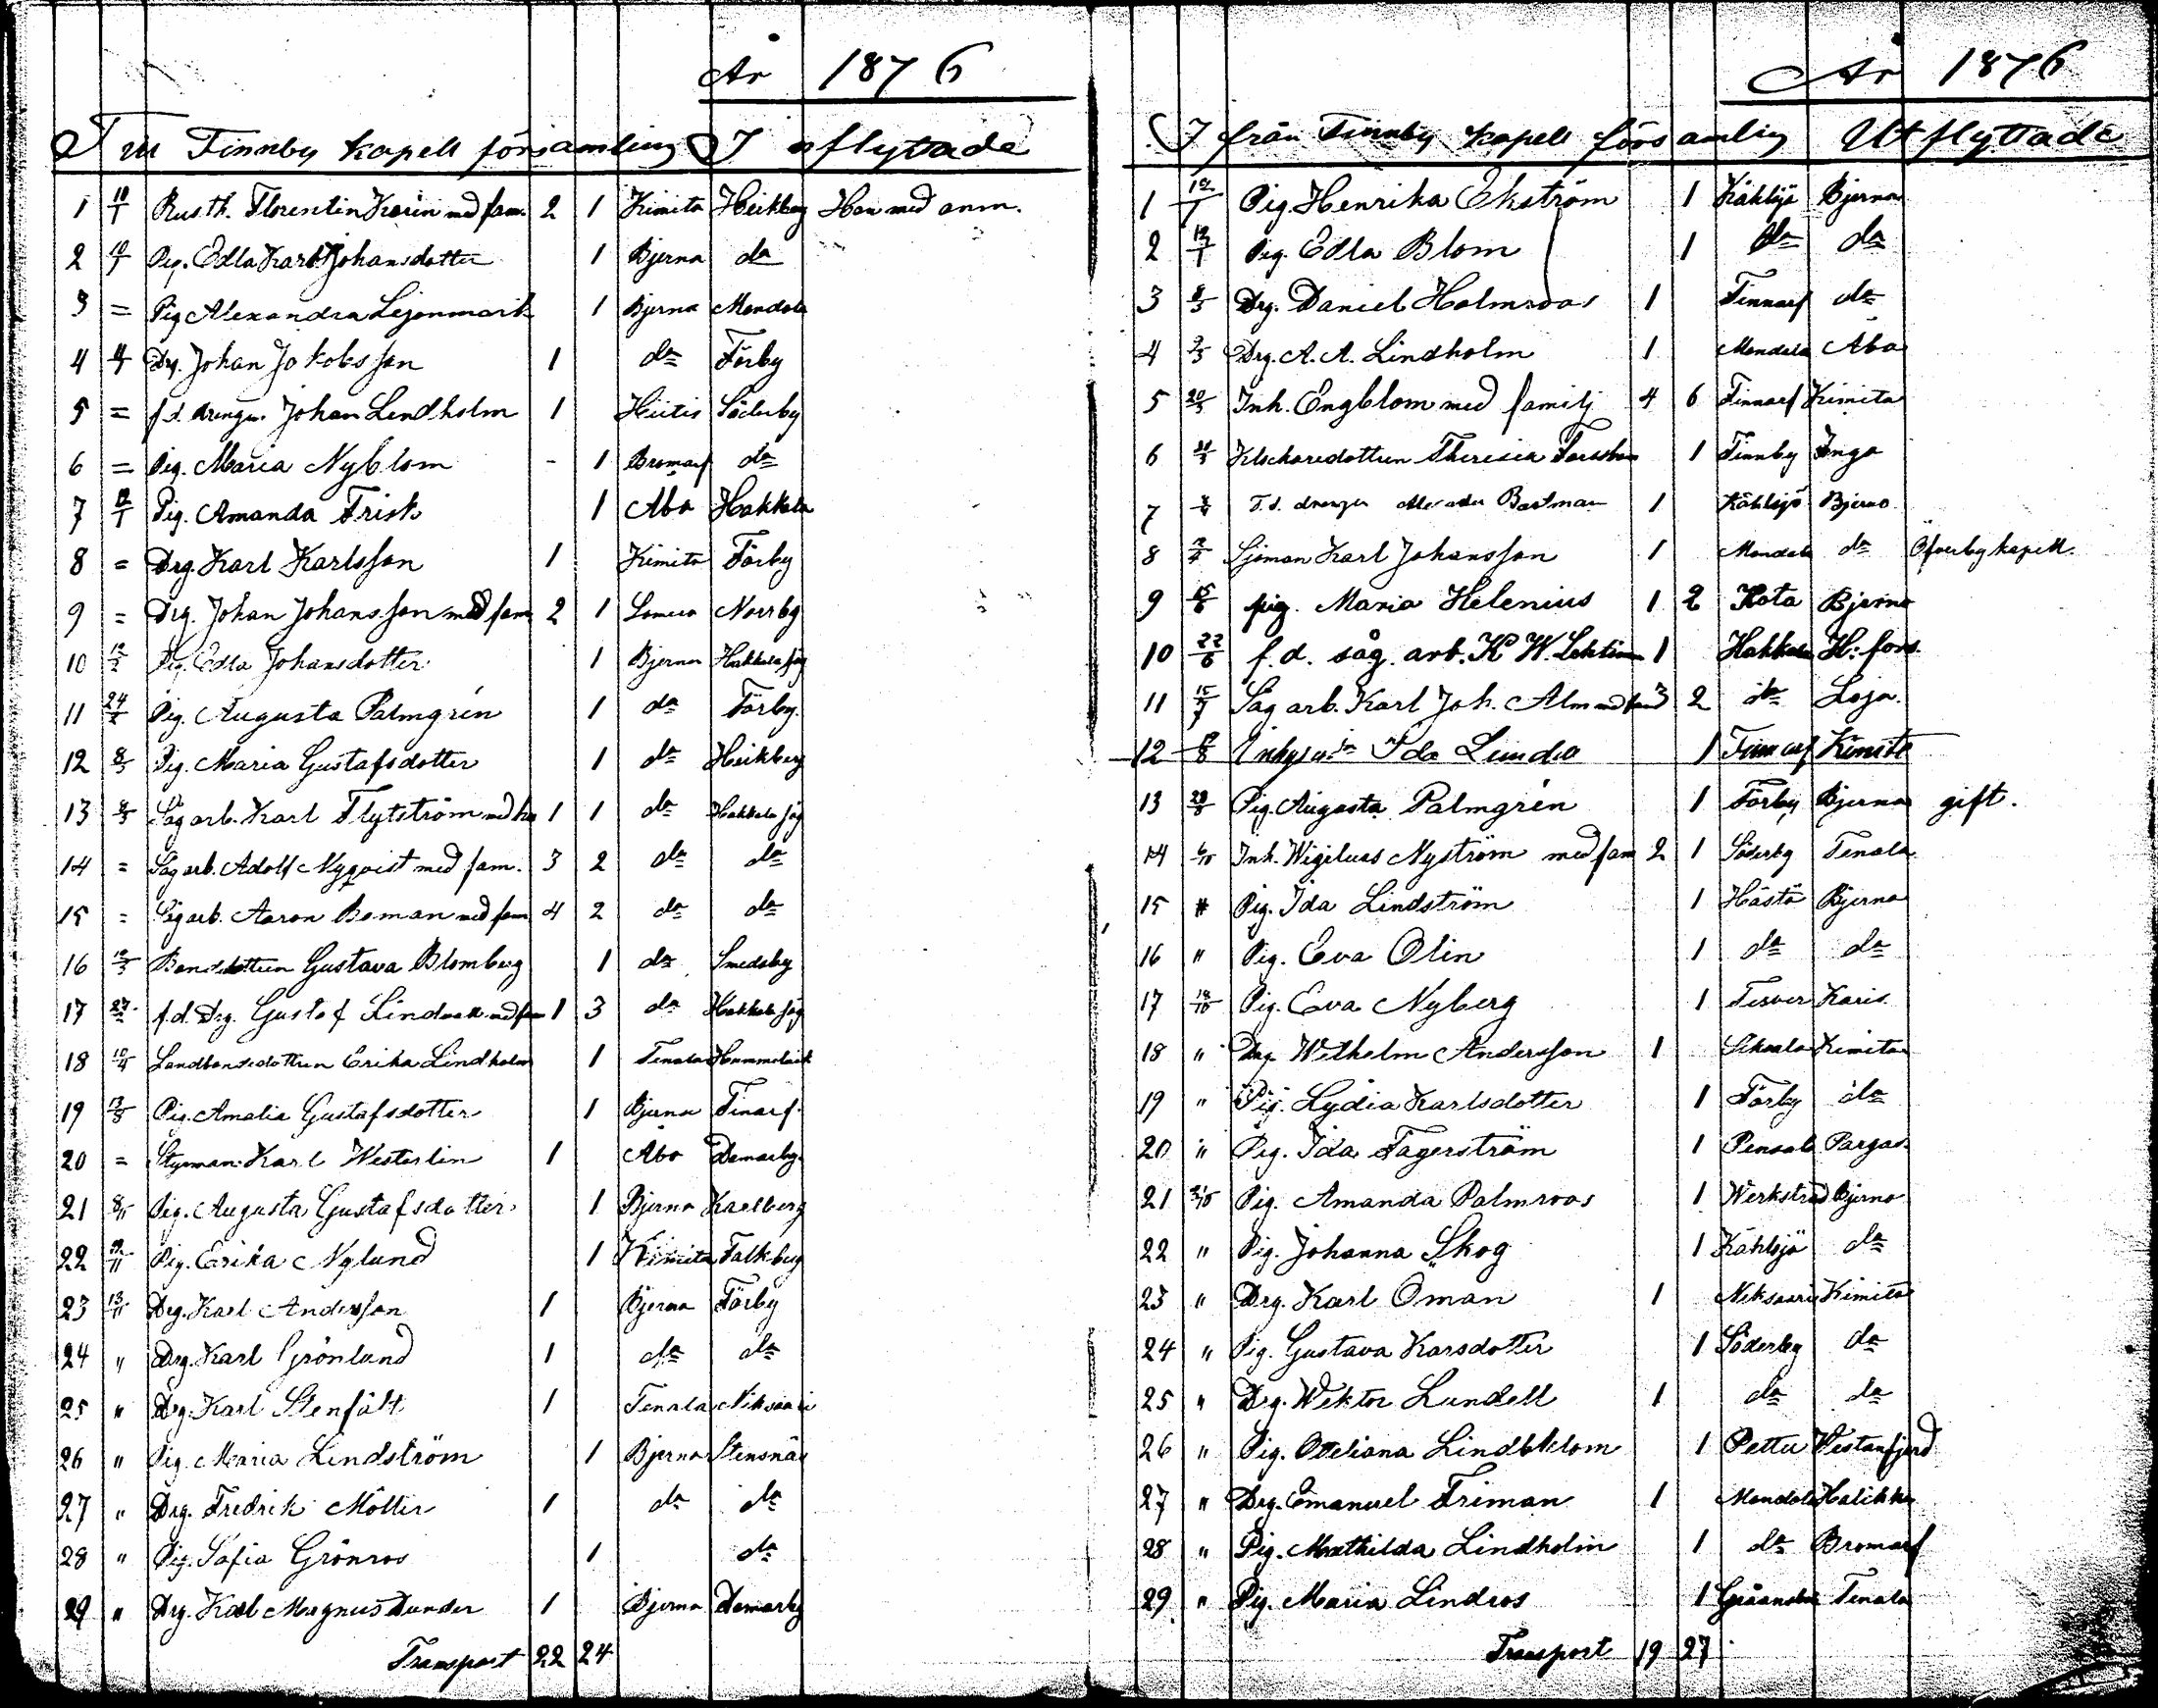 År 1876
Till Finnby kapell församling Inflyttade
1 10/1 Rusth. Florentin Karin med fam. 2 1 Kimito Heikberg Han med anm.
2 Pig. Edla Karl Johansdotter 1 Bjerna do
3 = Pig Alexandra Lejonmark 1 Bjerna Mondola
4 Drg. Johan Jakobsson 1 do Förby
5 = f.d. drengen Johan Lindholm 1 Hiitis Söderby
6 = Pig. Maria Nyblom - 1 Bromarf do
7 12/1 Pig. Amanda Frisk 1 Åbo Hakkala
8 = Drg. Karl Karlsson 1 Kimito Förby
9 = Drg. Johan Johansson med fam 2 1 Norrby
10 12/2 Pig. Edla Johansdotter 1 Bjerna Hakkala såg
11 24/2 Pig. Augusta Palmgrén 1 do Förby.
12 8/3 Pig. Maria Gustafsdotter 1 do Heikberg
13 8/3 Såg arb. Karl Flytström med hu 1 1 do Hakkala såg
14 = Såg arb. Adolf Nyqvist med fam. 3 2 do do
15 = Såg arb. Aaron Boman med fam 4 2 do do
16 Gustava Blomberg 1 do Smedsby
17 f.d. Drg. Gustaf 1 3 do Hakkala såg
18 Landbondedottren Erika Lindholm 1 Tenala
19 Pig. Amalia Gustafsdotter 1 Bjerna Finarf.
20 = Styrman Karl Westerlin 1 Åbo Damarby.
21 8/11 Pig. Augusta Gustafsdotter 1 Bjerna Karlberg
22 Pig. Erika Nylund 1 Kimito Falkberg
23 13/11 Drg. Karl Andersson 1 Bjerna Förby
24 " Drg. Karl Grönlund 1 do do
25 " Drg. Karl Stenfält 1 Tenala Niksaari
26 " Pig. Maria Lindström 1 Bjerna Stensnäs
27 " Drg. Fredrik Möller 1 do do
28 " Pig. Sofia Grönros 1 do
29 " Drg. Karl Magnus Dunder 1 Bjerna Damarby
Transport 22 24
År 1876
Ifrån Finnby kapell församlig Utflyttade
1 Pig. Henrika Ekström 1 Kählsjö Bjerna
2 Pig. Edla Blom 1 do do
3 8/3 Drg. Daniel Holmroos 1 Finnarf do
4 Drg. A. A. Lindholm 1 Mondola Åbo
5 20/3 Inh. Engblom med familj 4 6 Finnarf Kimito
6 Klockaredottren Theresia 1 Finnby Inga
7 F.d. drengen Bastman 1 Kählsjö Bjerno
8 Sjöman Karl Johansson 1 Mondola do Öfverby kapell.
9 pig. Maria Helenius 1 2 Kota Bjerno
10 22/6 f.d. såg. arb. K W. 1 Hakkala H:fors.
11 15/7 Såg arb. Karl Joh. Alm med fam 3 2 do Lojo.
12 Ida Lunda 1 Finnarf Kimito
13 29/8 Pig. Augusta Palmgrén 1 Förby Bjerna gift.
14 6/10 Inh. Wigilius Nyström med fam 2 1 Söderby Tenala
15 " Pig. Ida Lindström 1 Hästö Bjerna
16 " Pig. Eva Olin 1 do do
17 Pig. Eva Nyberg 1 Karis
18 " Drg. Wilhelm Andersson 1 Kimito
19 " Pig. Lydia Karlsdotter 1 Förby do
20 " Pig. Ida Fagerström 1 Pensalo Pargas
21 Pig. Amanda Palmroos 1 Werkstrad Bjerno
22 " Pig. Johanna Skog 1 Kählsjö do
23 " Drg. Karl Öman 1 Niksaari Kimito
24 " Pig. Gustava Karsdotter 1 Söderby do
25 " Drg. Wiktor Lundell 1 do do
26 " Pig. Otteliana Lindblom 1 Pettu Westanfjerd
27 " Drg. Emanuel Friman 1 Mondola Halikko
28 " Pig. Mathilda Lindholm 1 do Bromarf
29 " Pig. Maria Lindros 1 Tenala
Transport 19 27